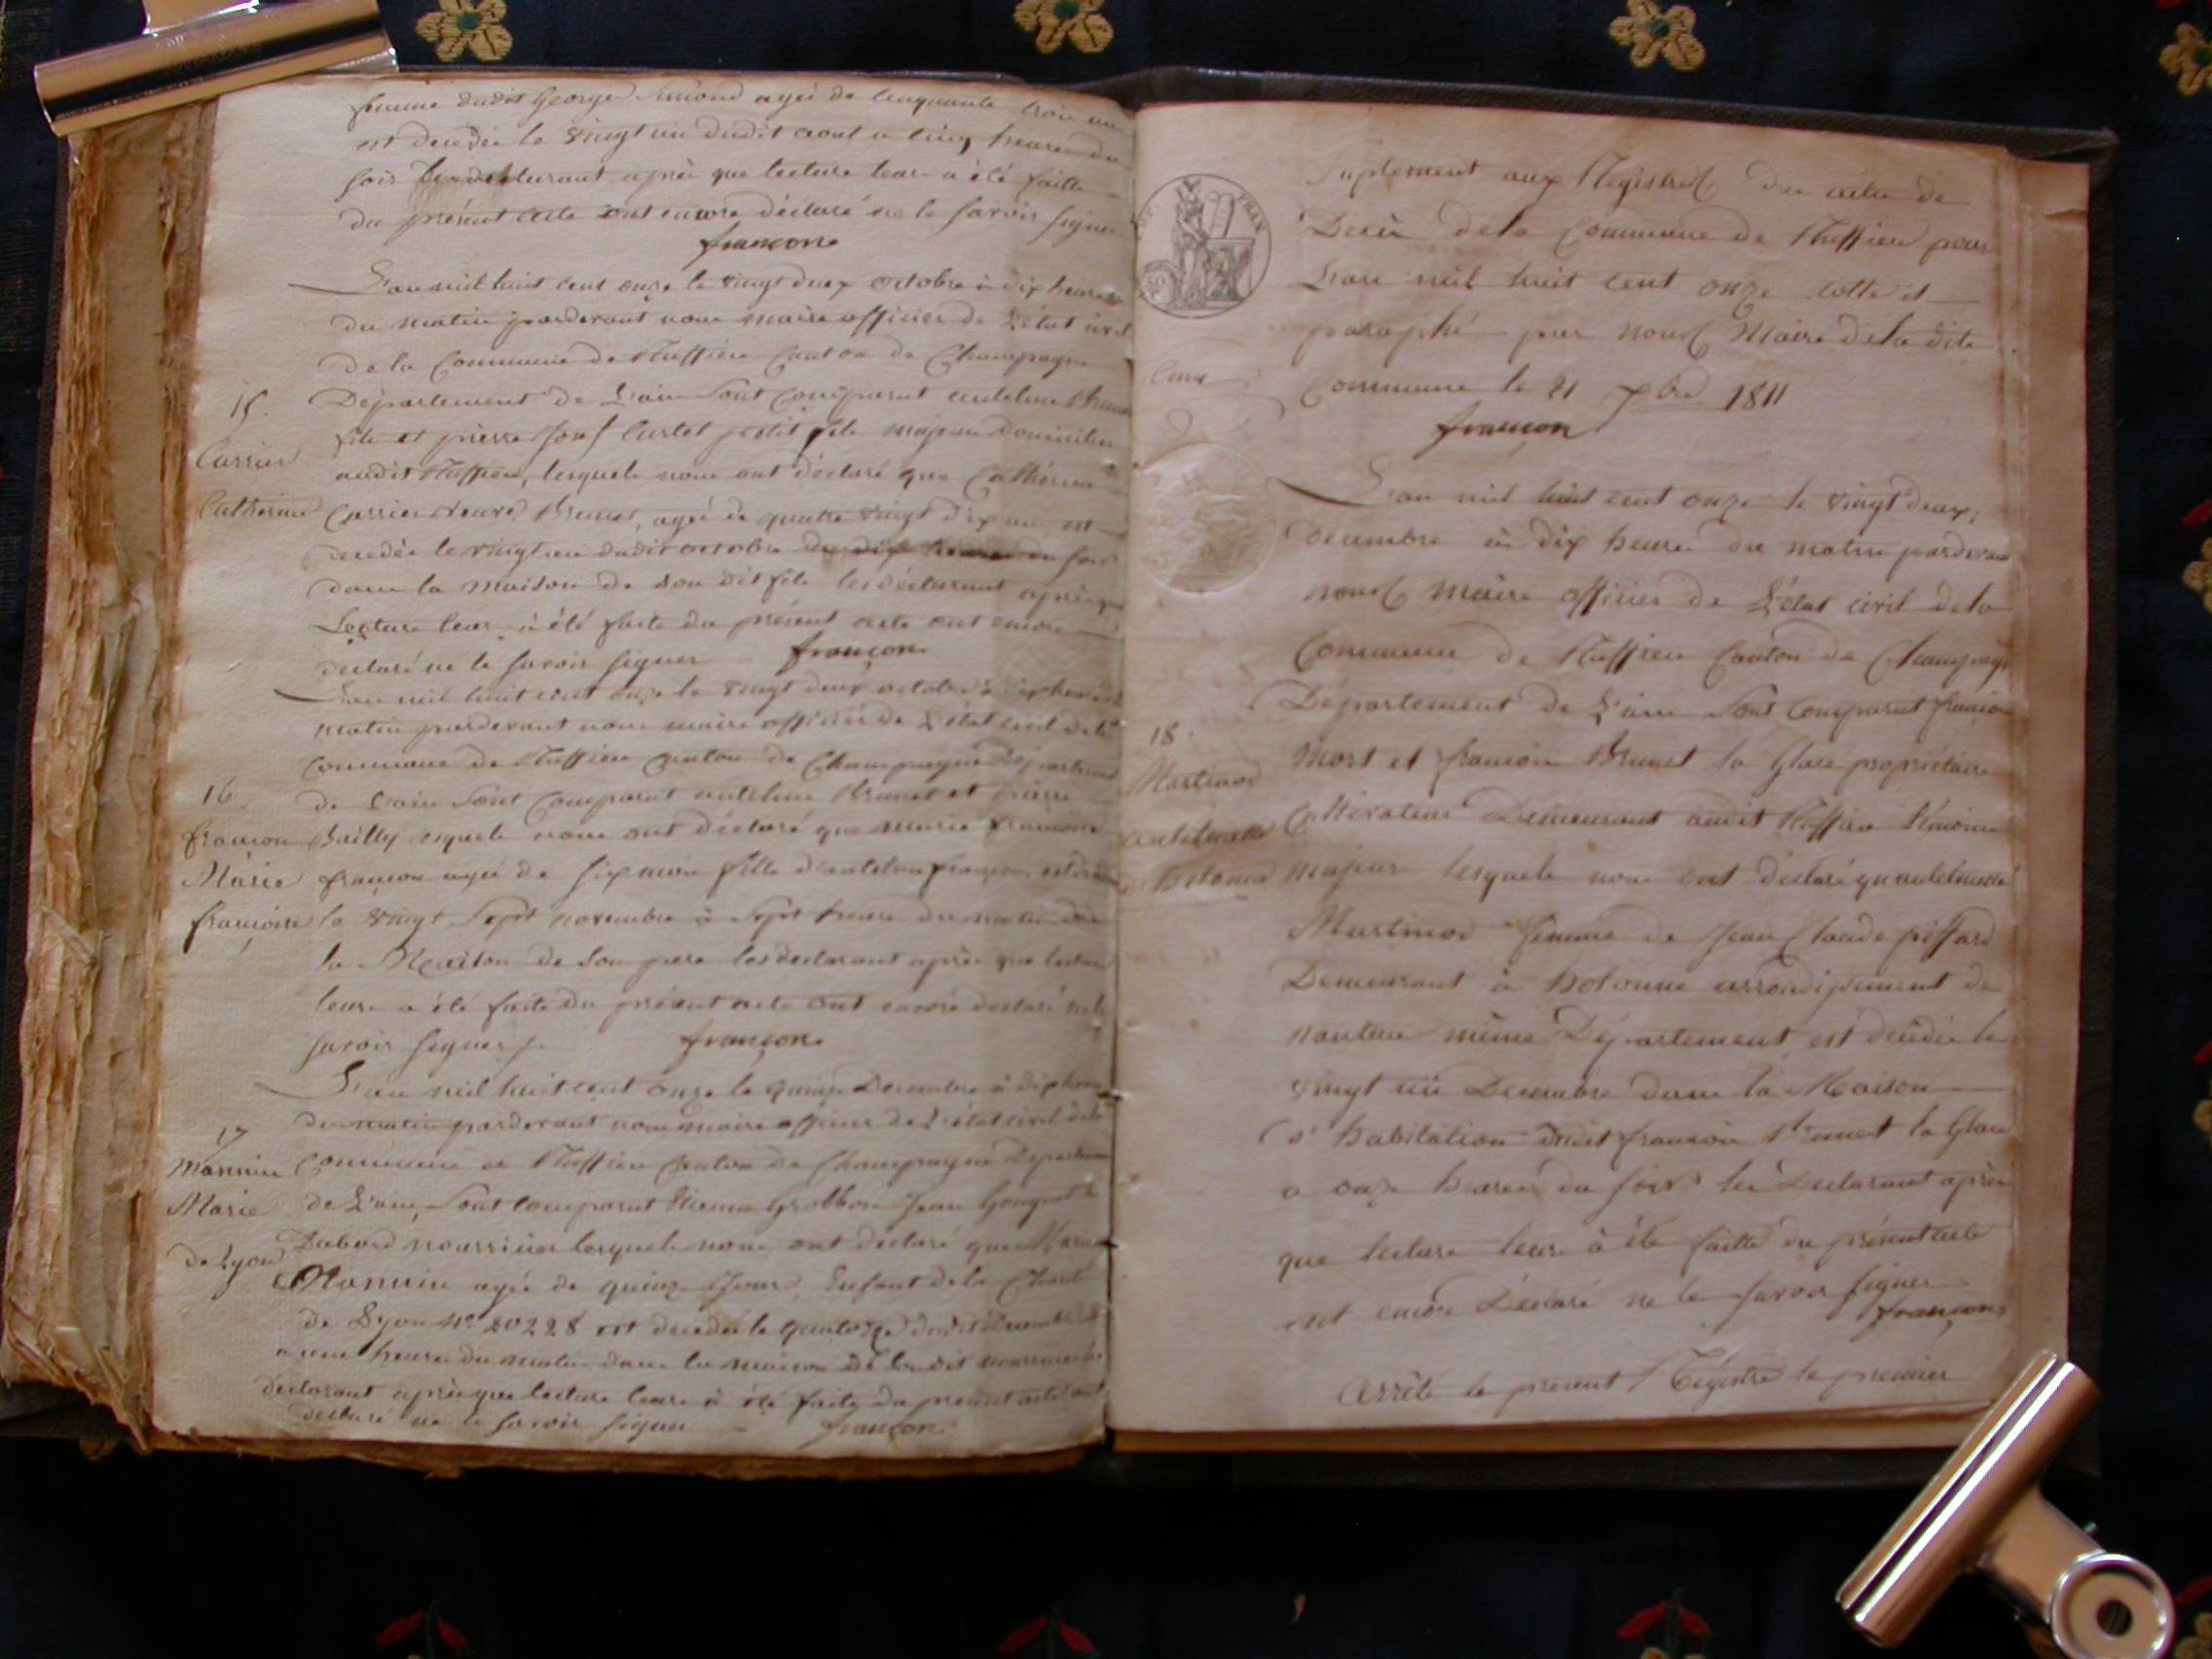 femme dudit George Simond agée de cinquante trois ans
est decedée le vingt un dudit aout a cinq heures du
soir les declarant après que lecture leur a été faitte
du présent acte ont encore déclaré ne le savoir signer
françon
L'an mil huit cent onze le vingt deux octobre à dix heures
du matin pardevant nous maire officier de l'état civil
de la Commune de Ruffieu Canton de Champagne
15.
Département de L'ain sont comparut antelme Brunet
fils et pierre Josef Curtet petit fils majeurs domiciliés
Carrier
audit Ruffieu, lesquels nous ont déclaré que Catherine
Catherine
Carrier veuve Brunet, agée de quatre vingt dix ans est
decedée le vingt un dudit octobre du soir
dans la maison de son dit fils les déclarant après que
Lecture leur à été faite du présent acte ont encore
declaré ne le savoir signer françon
L'an mil huit cent onze le vingt deux octobre à dix heures
matin pardevant nous maire officier de l'état civil de la
commune de Ruffieu Canton de Champagne Département
16
de L'ain sont comparut antelme Brunet et pierre
françon
Bailly lesquels nous ont déclaré que marie françoise
Marie
françon agée de six mois fille d'antelme françon est
françoise
le vingt sept novembre à sept heures du matin dans
la Maison de son pere les declarant après que lecture
leurs a été faite du présent acte ont encore declaré ne le
savoir signer françon
L'an mil huit cent onze le quinze Decembre à dix heures
du matin pardevant nous maire officier de l'état civil de la
17
Mannin
Commune de Ruffieu Canton de Champagne Departement
Marie
de L'ain, sont comparut Jean
de Lyon
nourricier lesquels nous ont déclaré que Marie
Mannin agée de quinze Jours, Enfant de la Charité
de Lyon N° 20228 est decedée le quatorze dudit Decembre
a une heures du matin dans la maison de son dit nourricier les
declarant après que lecture leurs à été faite du present acte ont
declaré ne le savoir signer françon
Suplement aux Registres des actes de
Decès de la Commune de Ruffieu pour
L'an mil huit cent onze cotté et
paraphé par nous Maire de la dite
Commune le 21 Xbre 1811
françon
L'an mil huit cent onze le vingt deux
decembre à dix heures du matin pardevant
nous maire officier de L'état civil de la
Commune de Ruffieu Canton de Champagne
Département de L'ain sont comparut françois
18.
Mort et françois Brunet la Glace propriétaires
Martinod
Cultivateurs Demeurant audit Ruffieu témoins
antelmette
majeurs lesquels nous ont déclaré qu'antelmette
hotonne
Martinod femme de Jean Claude piffard
Demeurant à hotonne arrondissement de
nantua même Département est decedée le
vingt un Decembre dans la Maison
d'habitation dudit françois Brunet la Glace
a onze heures du soir les Declarant après
que lecture leurs à été faitte du présent acte
ont encore Déclaré ne le savoir signer
françon
Arrêté le present Régistre le premier